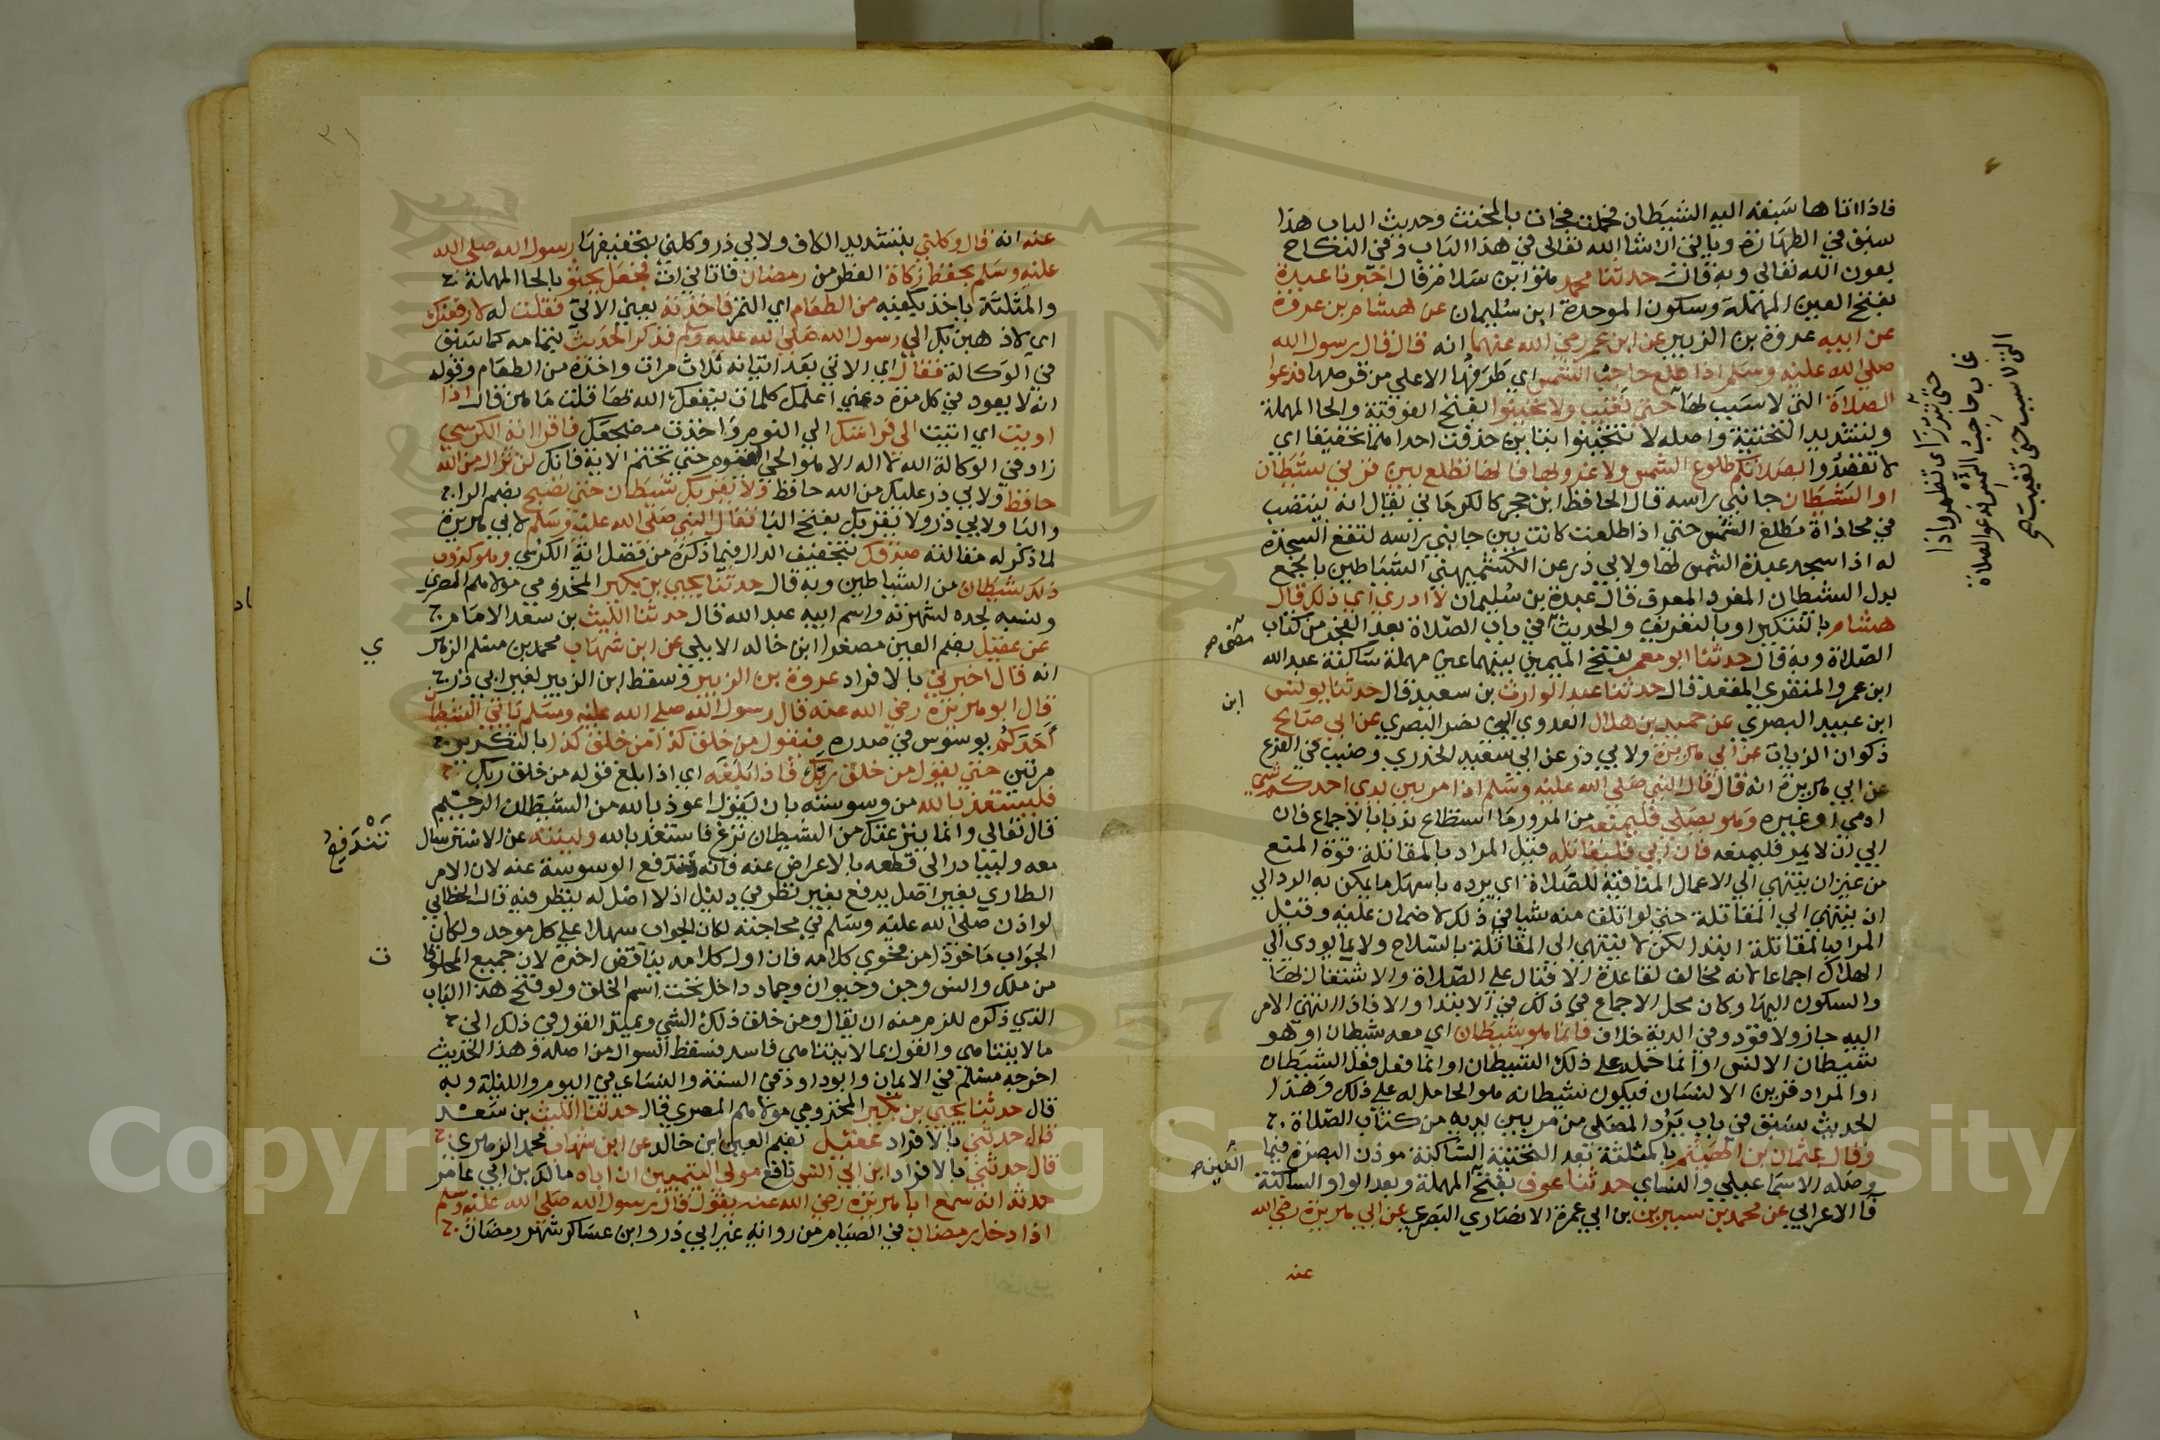 فاذا اتاها سبقه اليه الشيطان فحملت فجات بالمخنث وحديث الباب هذا
سبق في الطهارة وياتي ان شا الله تعالى في هذا الباب وفي النكاح
بعون الله تعالى وبه قال حدثنا محمد هو ابن سلام قال اخبرنا عبدة
بفتح العين المهملة وسكون الموحدة ابن سليمان عن هشام بن عروة
عن ابيه عروة بن الزبير عن ابن عمر رضي الله عنهما انه قال قال رسول الله
صلى الله عليه وسلم اذا طلع حاجب الشمس اي طرفها الاعلى من قرصها فدعوا
الصلاة التي لا سبب لها حتى تغيب ولا تحينوا بفتح الفوقية والحا المهملة
وتشديد التحتية واصله لا تتحينوا بتاين حذفت احداهما تخفيفا اي
لا تقصدوا بصلاتكم طلوع الشمس ولا غروبها فانها تطلع بين قرني شيطان
او الشيطان جانبي راسه قال الحافظ ابن حجر كالكرماني يقال انه ينتصب
في محاذاة مطلع الشمس حتى اذا طلعت كانت بين جانبي راسه لتقع السجدة
له اذا سجد عبدة الشمس لها ولابي ذر عن الكشميهني الشياطين بالجمع
بدل الشيطان المفرد المعرف قال عبدة بن سليمان لا ادري اي ذلك قال
هشام بالتنكير او بالتعريف والحديث مضى في باب الصلاة بعد الفجر من كتاب
الصلاة وبه قال حدثنا ابو معمر بفتح الميمين بينهما عين مهملة ساكنة عبد الله
ابن عمرو المنقري المقعد قال حدثنا عبد الوارث بن سعيد قال حدثنا يونس
ابن عبيد البصري عن حميد بن هلال العدوي ابي نصر البصري عن ابي صالح
ذكوان الزيات عن ابي هريرة ولابي ذر عن ابي سعيد الخدري وضبب في الفرع
عن ابي هريرة انه قال قال النبي صلى الله عليه وسلم اذا مر بين يدي احدكم شي
ادمي او غيره وهو يصلي فليمنعه من المرور ما استطاع ندبا بالاجماع فان
ابى ان لا يمر فليمنعه فان ابى فليقاتله قيل المراد بالمقاتلة قوة المنع
من غير ان ينتهي الى الاعمال المنافية للصلاة اي يرده باسهل ما يمكن به الرد الى
ان ينتهي الى المقاتلة حتى لو اتلف منه شيا في ذلك لا ضمان عليه وقيل
المراد بالمقاتلة ابتدا لكن لا ينتهي الى المقاتلة بالسلاح ولا بما يودي الى
الهلاك اجماعا لانه مخالف لقاعدة الاقبال على الصلاة والاشتغال بها
والسكون اليها وكان محل الاجماع في ذلك في الابتدا والا فاذا انتهى الامر
اليه جاز ولا قود وفي الدية خلاف فانما هو شيطان اي معه شيطان او هو
شيطان الانس او انما حمله على ذلك الشيطان او انما فعل فعل الشيطان
او المراد قرين الانسان فيكون شيطانه هو الحامل له على ذلك وهذا
الحديث سبق في باب يرد المصلي من مر بين يديه من كتاب الصلاة
وقال عثمان بن الهيثم بالمثلثة بعد التحتية الساكنة موذن البصرة فيما
وصله الاسماعيلي والنساي حدثنا عوف بفتح العين المهملة وبعد الواو الساكنة
فا الاعرابي عن محمد بن سيرين بن ابي عمرة الانصاري البصري عن ابي هريرة رضي الله
عنه
حتى تبرز اي تظهر واذا
غاب حاجب الشمس فدعوا الصلاة
التي لا سبب حتى تغيب صح
مضى صح
ابن
العين صح
عنه انه قال وكلني بتشديد الكاف ولابي ذر وكلني بتخفيفها رسول الله صلى الله
عليه وسلم بحفظ زكاة الفطر من رمضان فاتاني ات فجعل يحثو بالحا المهملة
والمثلثة ياخذ بكفيه من الطعام اي التمر فاخذته يعني الاتي فقلت له لارفعنك
اي لاذهبن بك الى رسول الله صلى الله عليه وسلم فذكر الحديث بتمامه كما سبق
في الوكالة فقال اي الاتي بعد اتيانه ثلاث مرات واخذه من الطعام وقوله
انه لا يعود في كل مرة دعني اعلمك كلمات ينفعك الله بها قلت ما هن قال اذا
اويت اي اتيت الى فراشك الى النوم واخذت مضجعك فاقرا اية الكرسي
زاد في الوكالة الله لا اله الا هو الحي القيوم حتى تختم الاية فانك لن يزال من الله
حافظ ولابي ذر عليك من الله حافظ ولا يقربك شيطان حتى تصبح بضم الرا
والبا ولابي ذر ولا يقربك بفتح البا فقال النبي صلى الله عليه وسلم لابي هريرة
لما ذكر له مقالته صدقك بتخفيف الدال فيما ذكره من فضل اية الكرسي وهو كذوب
ذلك شيطان من الشياطين وبه قال حدثنا يحيى بن بكير المخزومي مولاهم المصري
ونسبه لجده لشهرته واسم ابيه عبد الله قال حدثنا الليث بن سعد الامام
عن عقيل بضم العين مصغرا ابن خالد الايلي عن ابن شهاب محمد بن مسلم الزهر
انه قال اخبرني بالافراد عروة بن الزبير وسقط ابن الزبير لغير ابي ذر
قال ابو هريرة رضي الله عنه قال رسول الله صلى الله عليه وسلم ياتي الشيطان
احدكم يوسوس في صدره فيقول من خلق كذا من خلق كذا بالتكرير
مرتين حتى يقول من خلق ربك فاذا بلغه اي اذا بلغ قوله من خلق ربك
فليستعذ بالله من وسوسته بان يقول اعوذ بالله من الشيطان الرجيم
قال تعالى واما ينزغنك من الشيطان نزغ فاستعذ بالله ولينته عن الاسترسال
معه وليبادر الى قطعه بالاعراض عنه فانه تندفع الوسوسة عنه لان الامر
الطاري بغير اصل يدفع بغير نظر في دليل اذ لا اصل له ينظر فيه قال الخطابي
لو اذن صلى الله عليه وسلم في محاجته لكان الجواب سهلا على كل موحد ولكان
الجواب ماخوذا من فحوى كلامه فان اول كلامه يناقض اخره لان جميع المخلوقا
من ملك وانس وجن وحيوان وجماد داخل تحت اسم الخلق ولو فتح هذا الباب
الذي ذكره للزم منه ان يقال ومن خلق ذلك الشي ويمتد القول في ذلك الى
ما لا يتناهى والقول بما لا يتناهى فاسد فسقط السوال من اصله وهذا الحديث
اخرجه مسلم في الايمان وابو داود في السنة والنساي في اليوم والليلة وبه
قال حدثنا يحيى بن بكير المخزومي مولاهم المصري قال حدثنا الليث بن سعد
قال حدثني بالافراد عقيل بضم العين ابن خالد عن ابن شهاب محمد الزهري
قال حدثني بالافراد ابن ابي انس نافع مولى التيميين ان اباه مالك بن ابي عامر
حدثه انه سمع ابا هريرة رضي الله عنه يقول قال رسول الله صلى الله عليه وسلم
اذا دخل رمضان في الصيام من رواية غير ابي ذر وابن عساكر شهر رمضان
ي
تندفع
ت
1957
Copyright © King Saud University